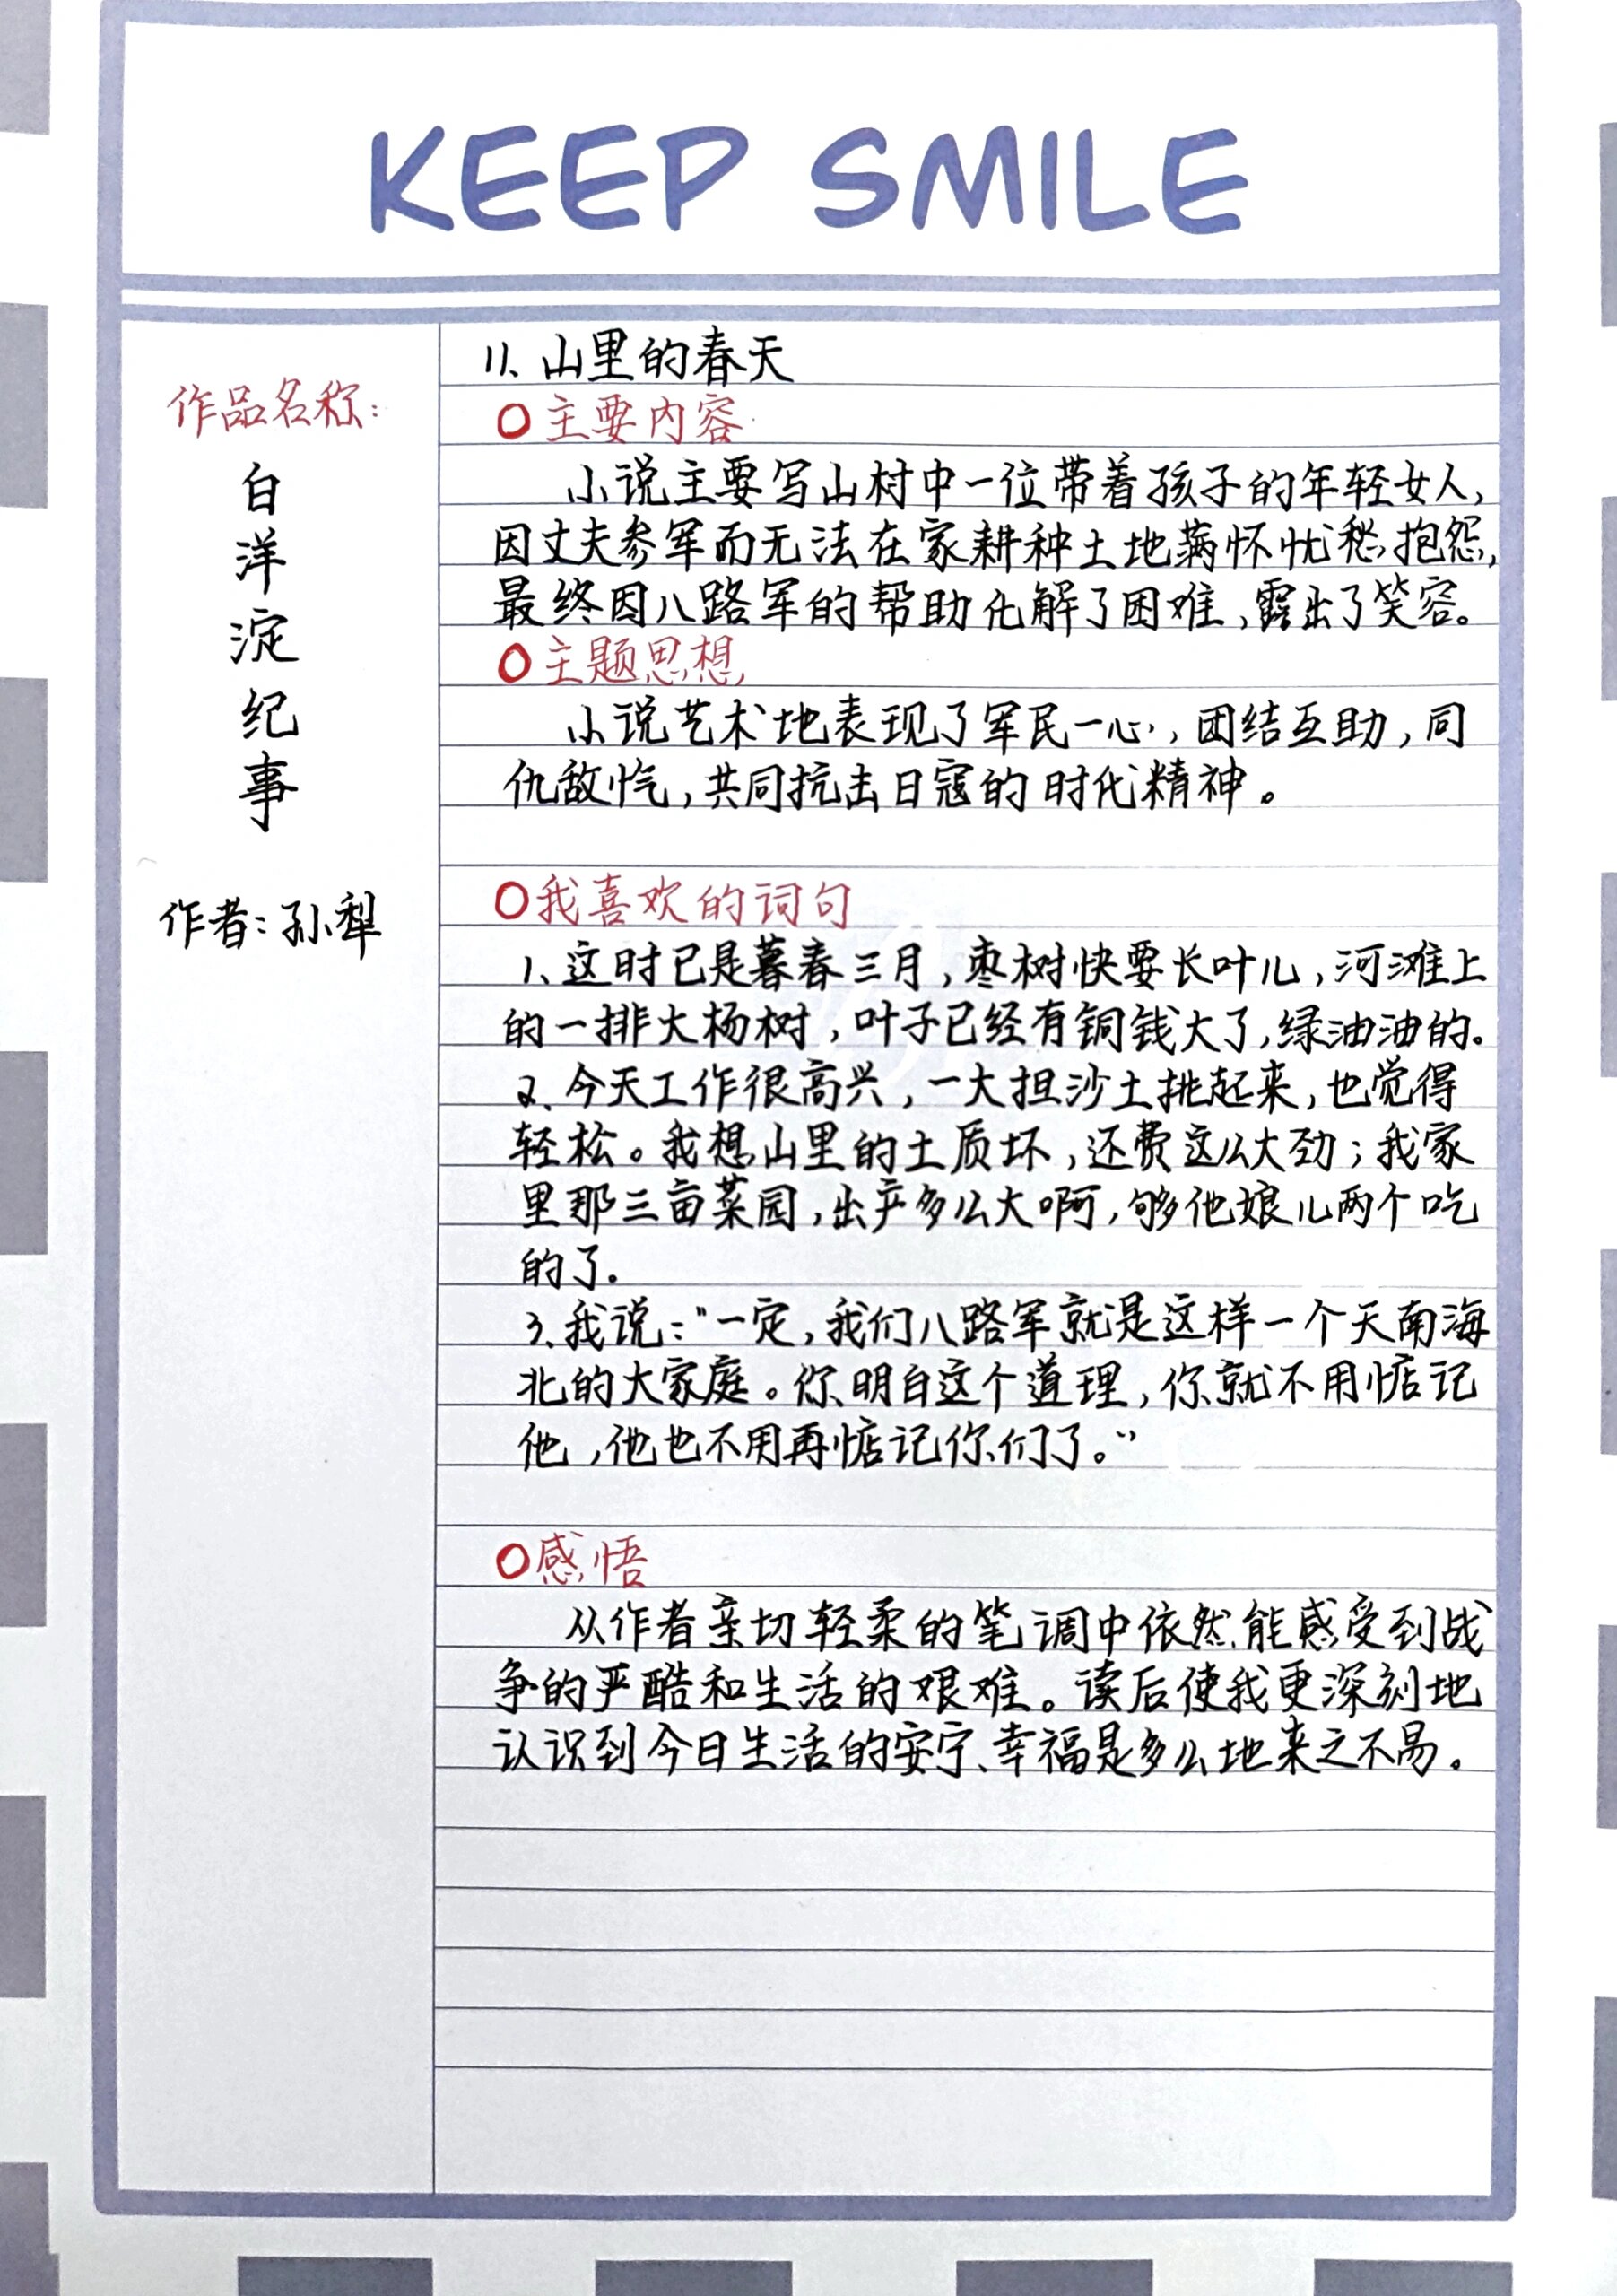 KEEP SMILE
作品名称:
白
洋
淀
纪
事
作者:孙犁
11、山里的春天
○主要内容
小说主要写山村中一位带着孩子的年轻女人,
因丈夫参军而无法在家耕种土地满怀忧愁,抱怨,
最终因八路军的帮助化解了困难,露出了笑容。
○主题思想
小说艺术地表现了军民一心,团结互助,同
仇敌忾,共同抗击日寇的时代精神。
○我喜欢的词句
1、这时已是暮春三月,枣树快要长叶儿,河滩上
的一排大杨树,叶子已经有铜钱大了,绿油油的。
2、今天工作很高兴,一大担沙土挑起来,也觉得
轻松。我想山里的土质坏,还费这么大劲;我家
里那三亩菜园,出产多么大啊,够他娘儿两个吃
的了.
3、我说:"一定,我们八路军就是这样一个天南海
北的大家庭。你明白这个道理,你就不用惦记
他,他也不用再惦记你们了。"
○感悟
从作者亲切轻柔的笔调中依然能感受到战
争的严酷和生活的艰难。读后使我更深刻地
认识到今日生活的安宁、幸福是多么地来之不易。